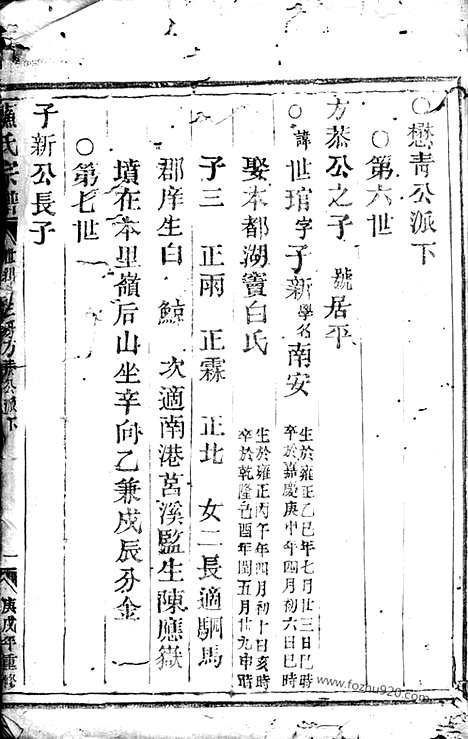 ○懋青公派下
○第六世
方恭公之子 號居平
○諱世琯字子新學名南安 生於雍正乙巳年七月廿三日巳時 卒於嘉慶庚申年四月初六日巳時
娶本都湖竇白氏 生於雍正丙午年四月初十日亥時 卒於乾隆己酉年閏五月廿九申時
子三 正雨 正霖 正北 女二長適駟馬
郡庠生白 鯨 次適南港莒溪監生陳應嶽
墳在本里嶺后山坐辛向乙兼戍辰分金
○第七世
子新公長子
氏宗譜 方恭公派下 一 庚戌年重修
www.fozhu920.com